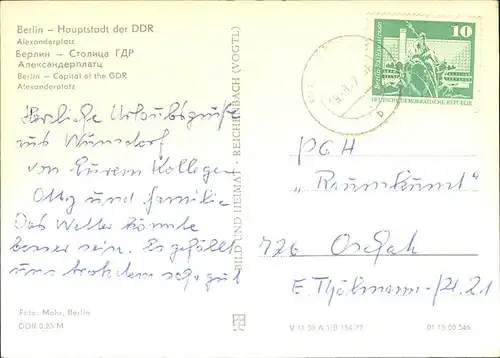 Berlin – Hauptstadt der DDR
Alexanderplatz
Берлин – Столица ГДР
Александерплатц
Berlin – Capital of the GDR
Alexanderplatz
Herzliche Urlaubsgrüße
aus Wünsdorf
von Eurem Kollegen
Otto und Familie
Das Wetter könnte
besser sein. Es gefällt
uns trotzdem sehr gut
Foto: Mohr, Berlin
DDR 0,25 M
BILD UND HEIMAT · REICHENBACH (VOGTL)
10
DEUTSCHE DEMOKRATISCHE REPUBLIK
PGH
„Raumkunst"
726 Oschatz
E. Thälmann-Pl. 21
V 11 50 A 1/B 154/77
01 15 03 546